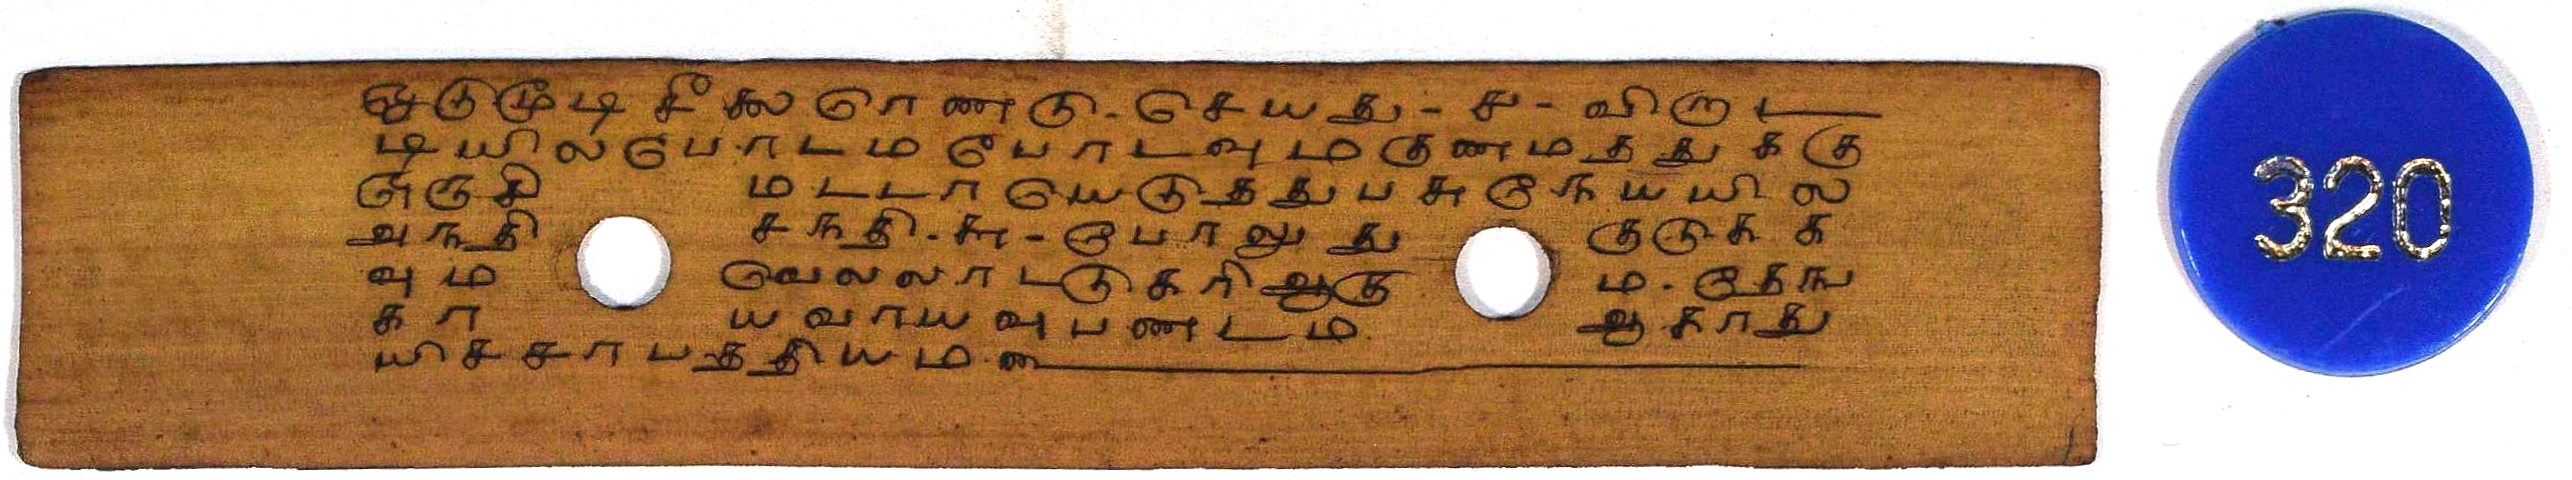 ஒடுமூடி சீலை ரெணடு-செயது-ச-விரட
டியிலபொடம பொடவும குணமதது ககு
ளுருசி மடடாயெடுதது பசுநெயயில
அநதி சநதி-சு-பொலுது குடுகக
வும வெலலாடடுகரி ஆகு ம-தெங
காய வாயவு பணடம ஆகாது
யிசசாபததியம
320